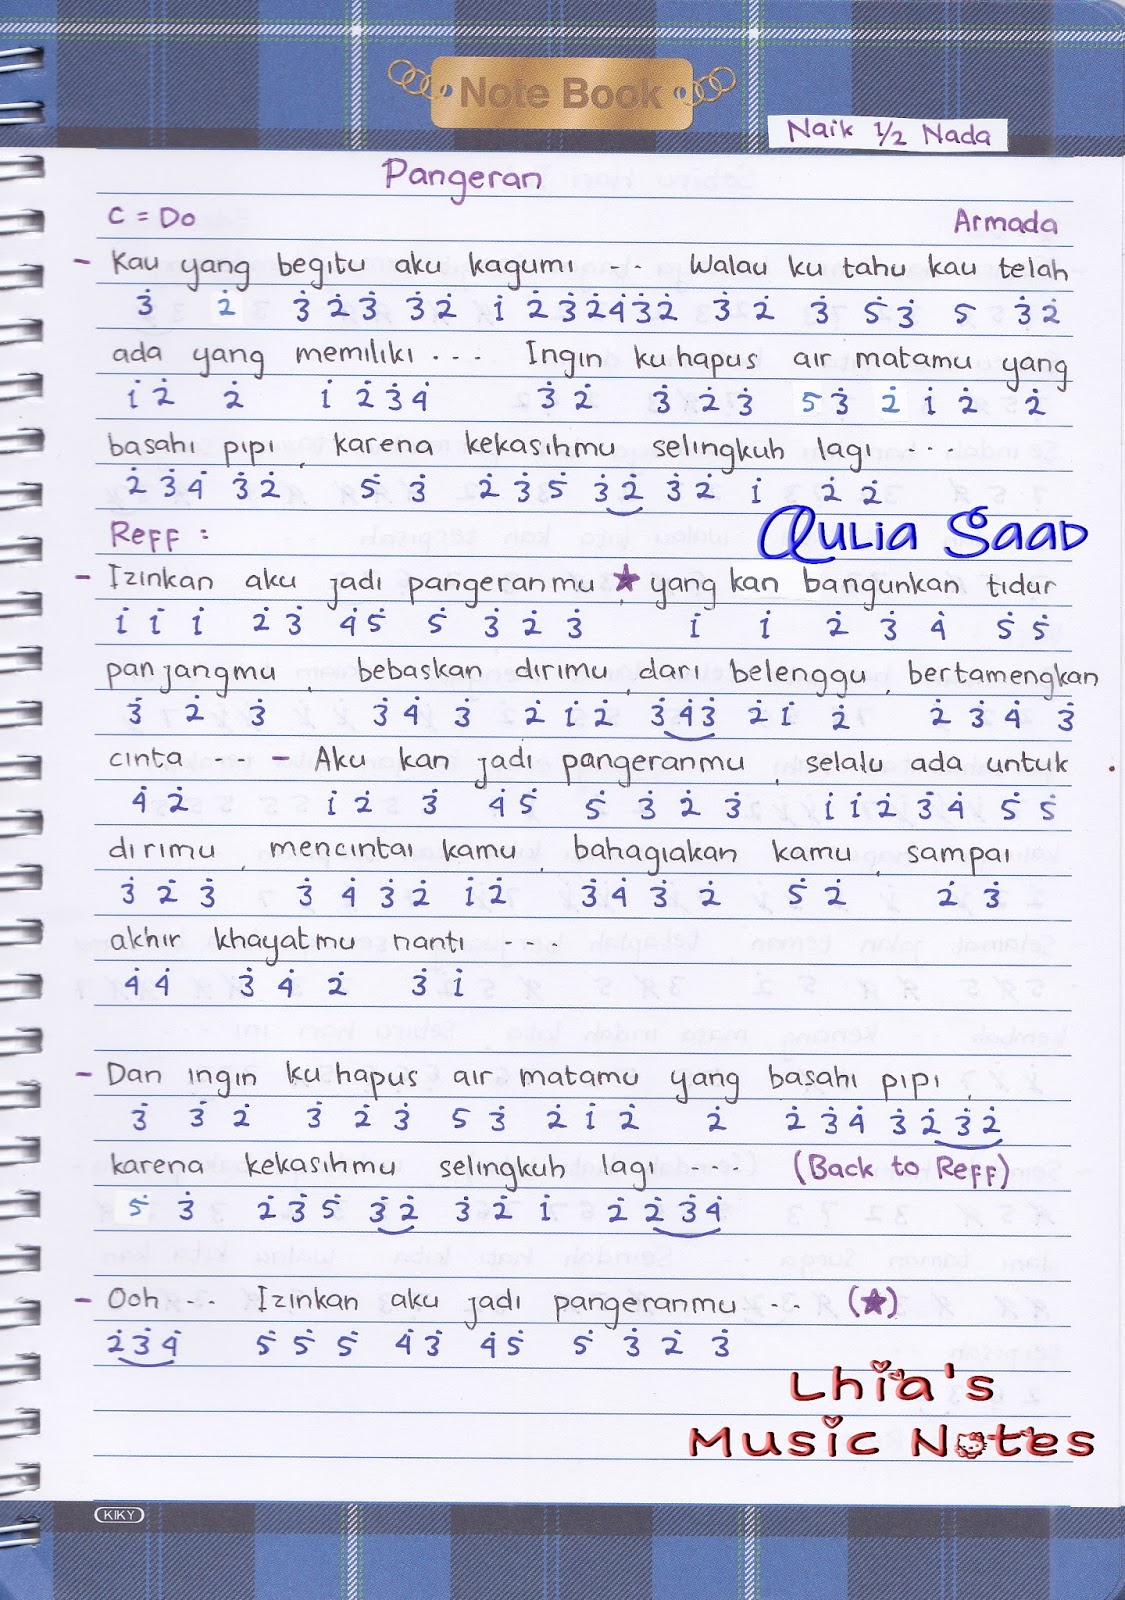 Note Book
Naik 1/2 Nada
Pangeran
C = Do Armada
- Kau yang begitu aku kagumi --- Walau ku tahu kau telah
3̇ 2̇ 3̇ 2̇ 3̇ 3̇ 2̇ 1̇ 2̇ 3̇ 2̇ 4̇ 3̇ 2̇ 3̇ 2̇ 3̇ 5̇ 3̇ 5̇ 3̇ 2̇
ada yang memiliki --- Ingin ku hapus air matamu yang
1̇ 2̇ 2̇ 1̇ 2̇ 3̇ 4̇ 3̇ 2̇ 3̇ 2̇ 3̇ 5̇ 3̇ 2̇ 1̇ 2̇ 2̇
basahi pipi, karena kekasihmu selingkuh lagi ---
2̇ 3̇ 4̇ 3̇ 2̇ 5̇ 3̇ 2̇ 3̇ 5̇ 3̇ 2̇ 3̇ 2̇ 1̇ 2̇ 2̇
Reff : Qulia Saad
- Izinkan aku jadi pangeranmu ★, yang kan bangunkan tidur
1̇ 1̇ 1̇ 2̇ 3̇ 4̇ 5̇ 5̇ 3̇ 2̇ 3̇ 1̇ 1̇ 2̇ 3̇ 4̇ 5̇ 5̇
panjangmu, bebaskan dirimu, dari belenggu, bertamengkan
3̇ 2̇ 3̇ 3̇ 4̇ 3̇ 2̇ 1̇ 2̇ 3̇ 4̇ 3̇ 2̇ 1̇ 2̇ 2̇ 3̇ 4̇ 3̇
cinta --- - Aku kan jadi pangeranmu, selalu ada untuk
4̇ 2̇ 1̇ 2̇ 3̇ 4̇ 5̇ 5̇ 3̇ 2̇ 3̇ 1̇ 1̇ 2̇ 3̇ 4̇ 5̇ 5̇
dirimu, mencintai kamu, bahagiakan kamu, sampai
3̇ 2̇ 3̇ 3̇ 4̇ 3̇ 2̇ 1̇ 2̇ 3̇ 4̇ 3̇ 2̇ 5̇ 2̇ 2̇ 3̇
akhir khayatmu nanti ----
4̇ 4̇ 3̇ 4̇ 2̇ 3̇ 1̇
- Dan ingin ku hapus air matamu yang basahi pipi,
3̇ 3̇ 2̇ 3̇ 2̇ 3̇ 5̇ 3̇ 2̇ 1̇ 2̇ 2̇ 2̇ 3̇ 4̇ 3̇ 2̇ 3̇ 2̇
karena kekasihmu selingkuh lagi --- (Back to Reff)
5̇ 3̇ 2̇ 3̇ 5̇ 3̇ 2̇ 3̇ 2̇ 1̇ 2̇ 2̇ 3̇ 4̇
- Ooh --- Izinkan aku jadi pangeranmu --- (★)
2̇ 3̇ 4̇ 5̇ 5̇ 5̇ 4̇ 3̇ 4̇ 5̇ 5̇ 3̇ 2̇ 3̇
Lhia's
Music Notes
KIKY